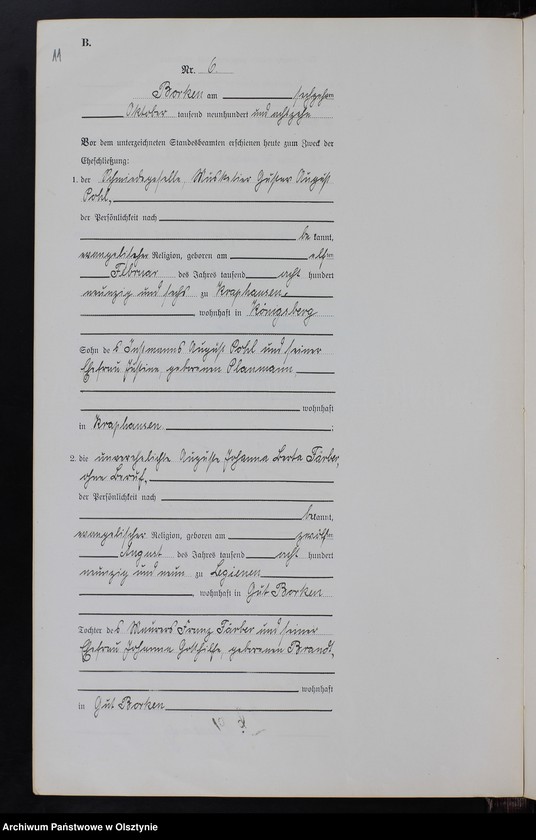 B.
11
Nr. 6.
Borken am sechzehnten
Oktober tausend neunhundert und achtzehn
Vor dem unterzeichneten Standesbeamten erschienen heute zum Zweck der
Eheschließung:
1. der Schmiedegeselle, Musketier Gustav August
Pohl,
der Persönlichkeit nach
be kannt,
evangelischer Religion, geboren am elften
Februar des Jahres tausend acht hundert
neunzig und sechs zu Kraphausen
wohnhaft in Königsberg
Sohn des Instmanns August Pohl und seiner
Ehefrau Justine, geborenen Planmann
wohnhaft
in Kraphausen ;
2. die unverehelichte Auguste Johanna Berta Färber,
ohne Beruf,
der Persönlichkeit nach
bekannt,
evangelischer Religion, geboren am zwölften
August des Jahres tausend acht hundert
neunzig und neun zu Legienen
, wohnhaft in Gut Borken
Tochter des Maurers Franz Färber und seiner
Ehefrau Johanna Gotthilfe, geborenen Brandt,
wohnhaft
in Gut Borken
Archiwum Państwowe w Olsztynie